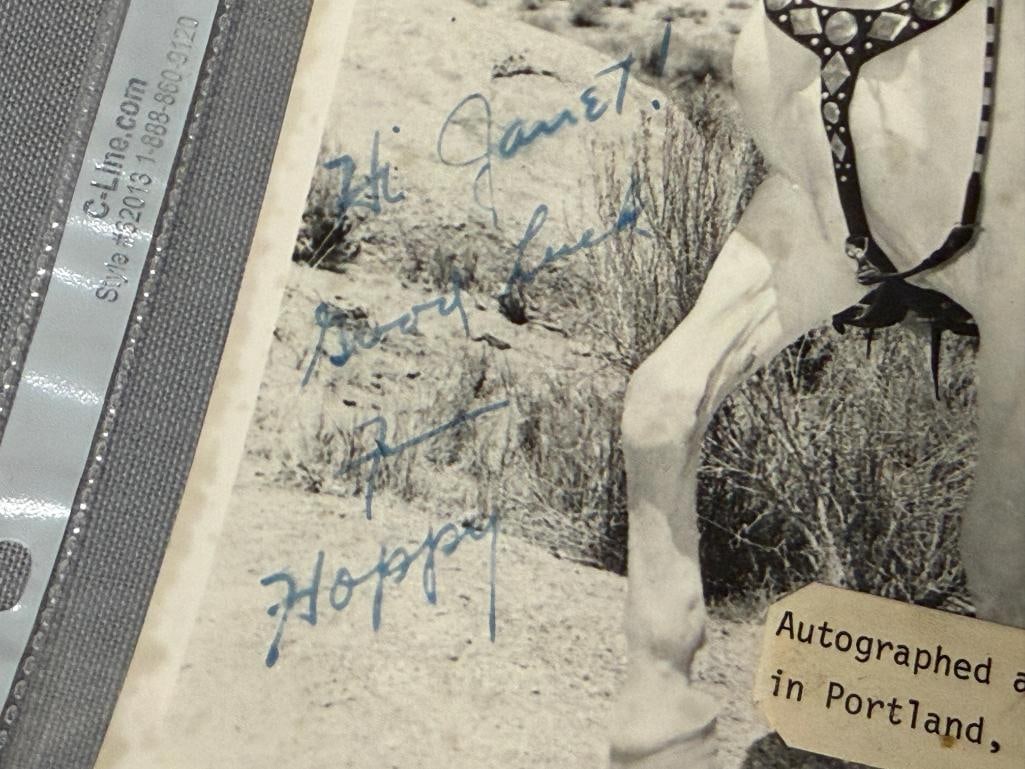 C-Line.com
Style #62013 1-888-860-9120
Hi Janet!
Good Luck
Hoppy
Autographed a
in Portland,